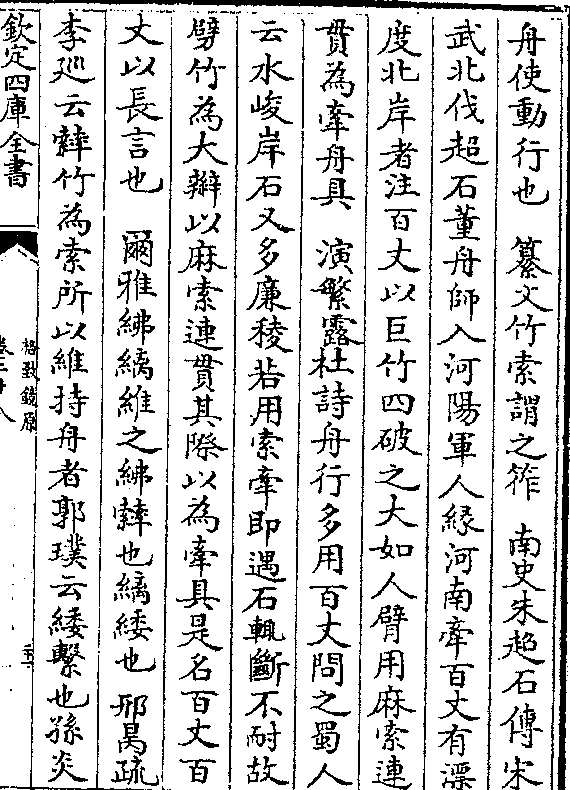 舟使動行也　纂文竹索謂之筰　南史朱超石傳宋
武北伐超石董舟師入河陽軍人緣河南牽百丈有漂
度北岸者注百丈以巨竹四破之大如人臂用麻索連
貫為牽舟具　演繁露杜詩舟行多用百丈問之蜀人
云水峻岸石又多廉稜若用索牽即遇石輒斷不耐故
劈竹為大辮以麻索連貫其際以為牽具是名百丈百
丈以長言也　爾雅紼縭維之紼䋖也縭緌也　邢昺疏
李廵云䋖竹為索所以維持舟者郭璞云緌繫也孫炎
欽定四庫全書
格致鏡原